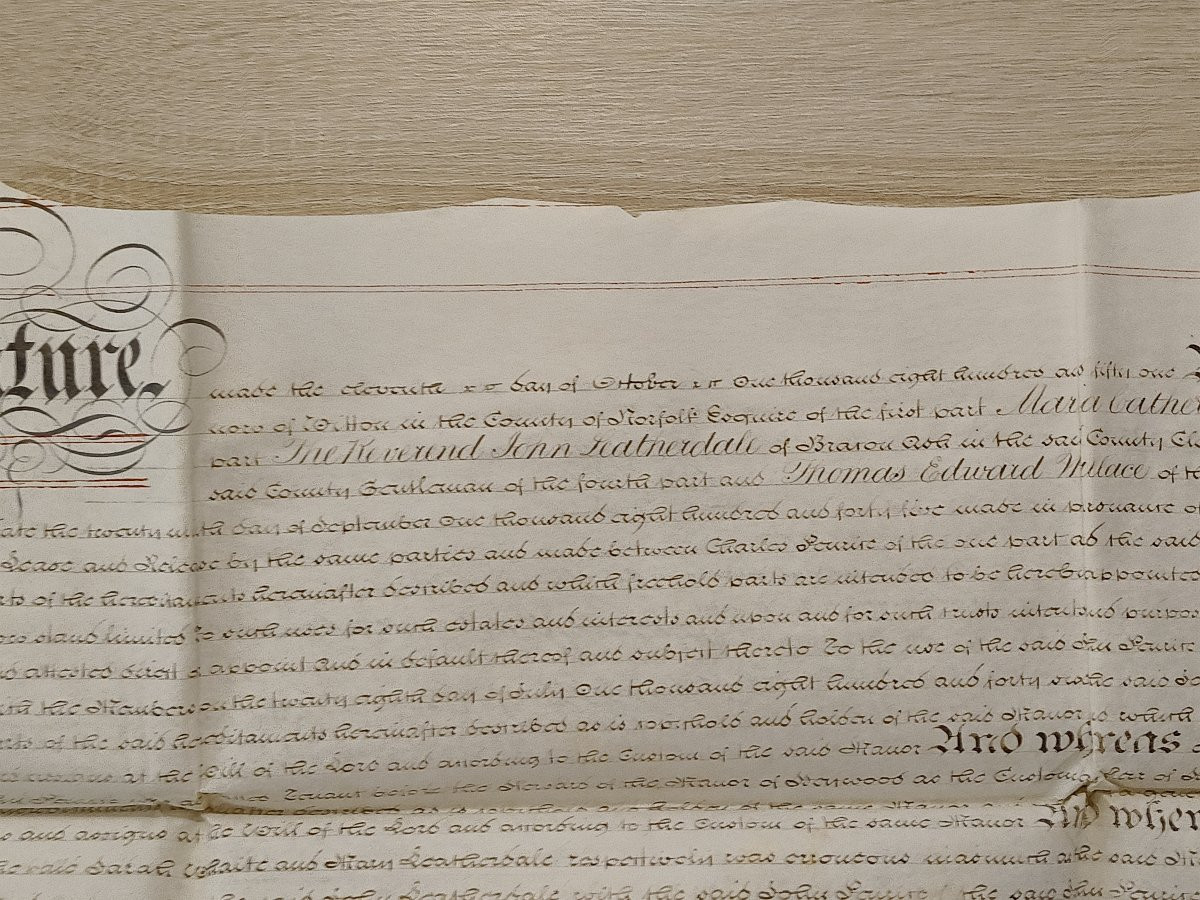 ture
made the eleventh day of October One thousand eight hundred and fifty one
of Witton in the County of Norfolk Esquire of the first part Maria Cather
part The Reverend John Leatherdale of Bracon Ash in the said County Cl
said County Gentleman of the fourth part and Thomas Edward of t
the twenty ninth day of September One thousand eight hundred and forty five made in pursuance of
Lease and Release by the same parties and made between Charles of the one part and the said
of the hereditaments hereinafter described and which freehold parts are intended to be hereby appointed
stand limited To such uses for such estates and interests and upon and for such trusts intents and purpo
attested direct or appoint and in default thereof and subject thereto To the use of the said John
on the twenty eighth day of July One thousand eight hundred and forty the said
of the said hereditaments hereinafter described as is copyhold and holden of the said Manor
at the Will of the Lord and according to the Custom of the said Manor And whereas
Tenant before the Steward of the Manor of Heywood as the Customary heir of
and assigns at the Will of the Lord and according to the Custom of the same Manor And wher
the said Sarah and Mary Leatherdale respectively was erroneous inasmuch as the said
John Leatherdale with the said John the said John